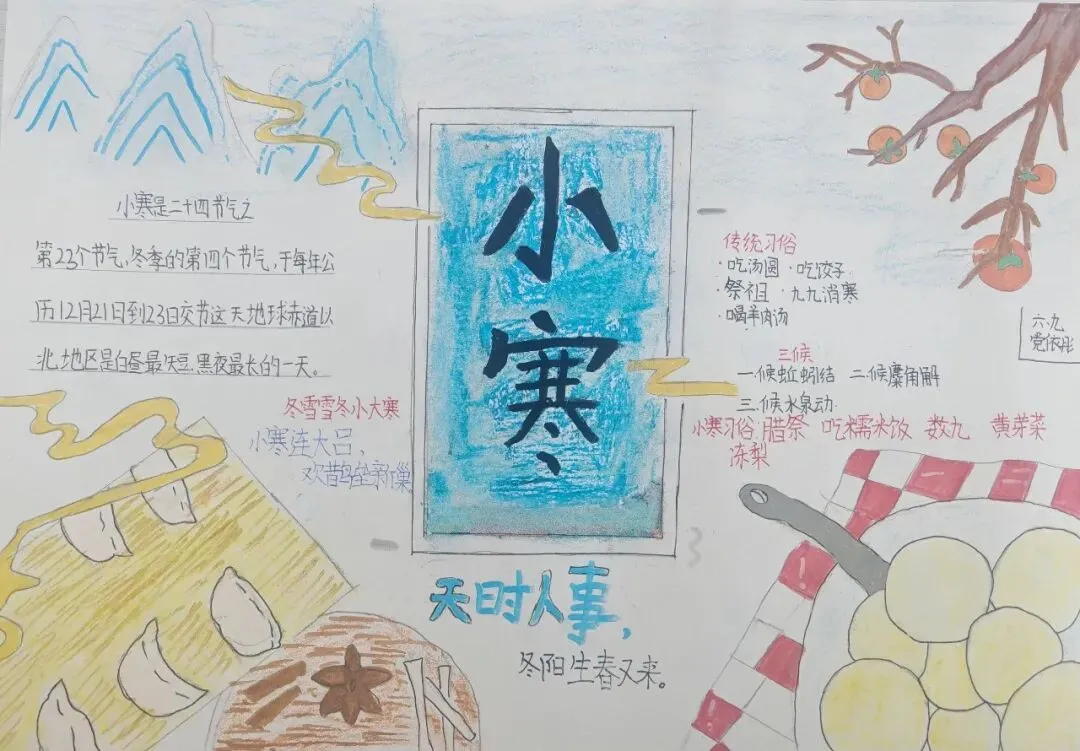 小寒
小寒是二十四节气之
第23个节气,冬季的第四个节气,于每年公
历12月21日到23日交节这天地球赤道以
北地区是白昼最短,黑夜最长的一天。
冬雪雪冬小大寒
小寒连大吕,
欢鹊垒新巢
传统习俗
·吃汤圆 ·吃饺子
·祭祖 ·九九消寒
·喝羊肉汤
六.九
党依彤
三候
一.候蚯蚓结 二候麋角解
三.候水泉动.
小寒习俗 腊祭 吃糯米饭 数九 黄芽菜
冻梨
天时人事,
冬阳生春又来。